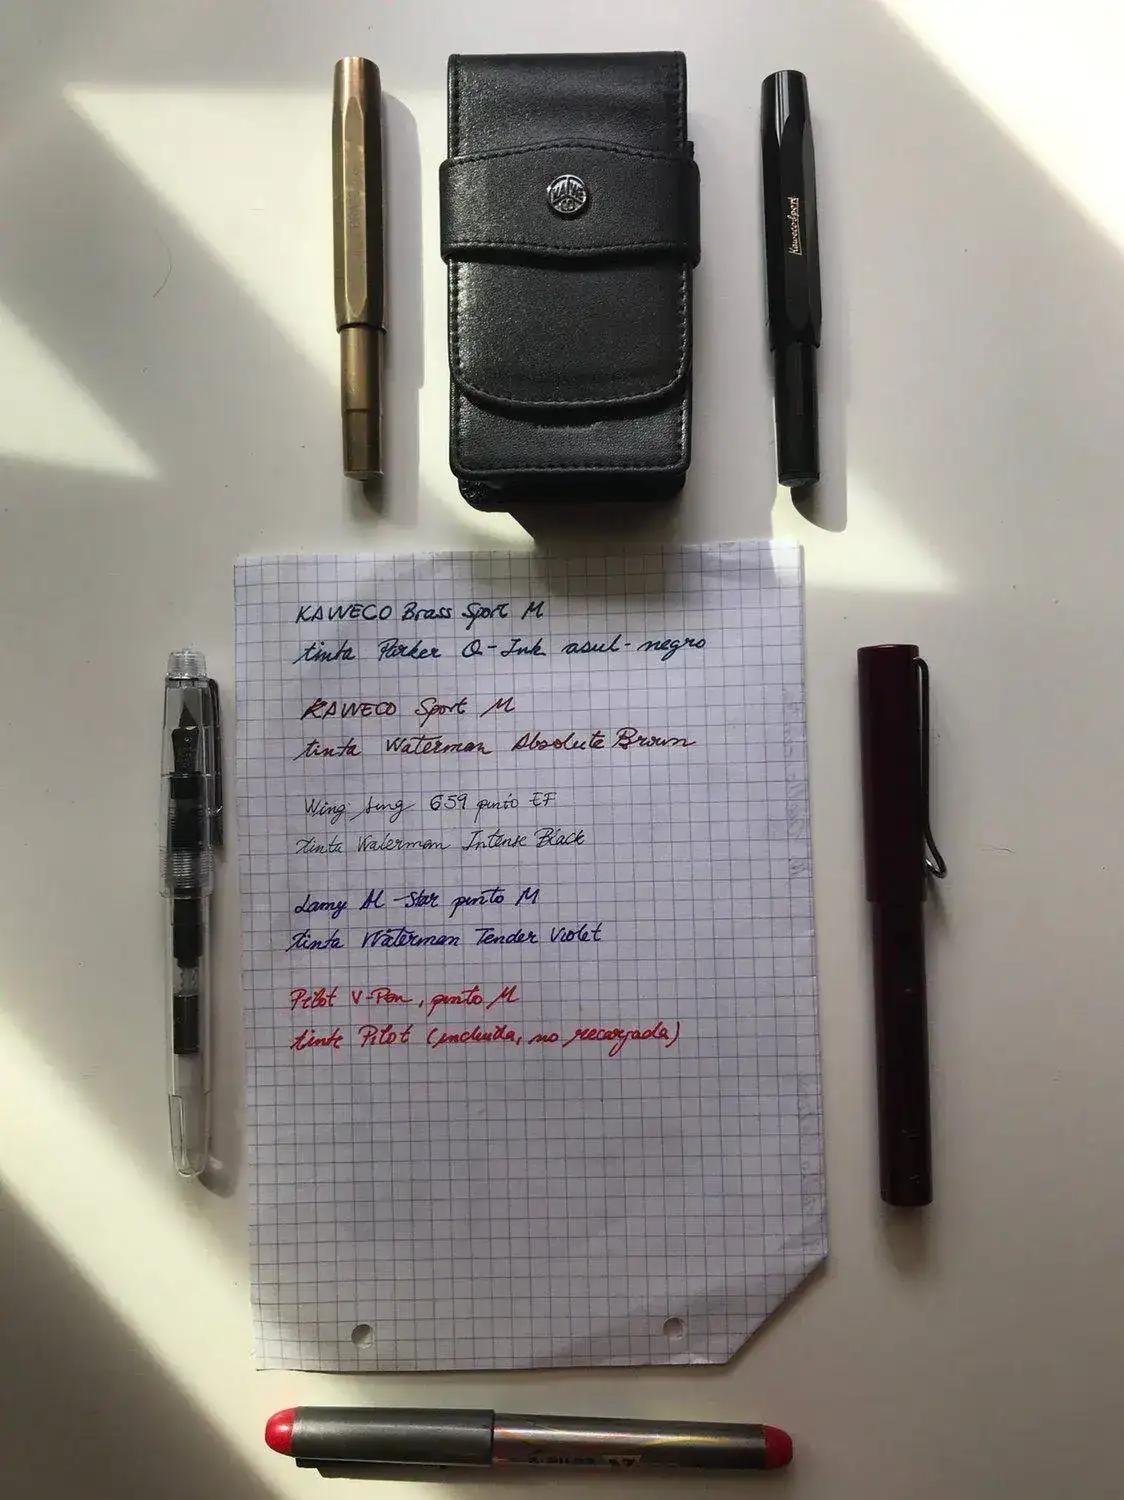 KAWECO Brass Sport M
tinta Parker Q-Ink asul-negro
KAWECO Sport M
tinta Waterman Absolute Brown
Wing Sung 659 punto EF
tinta Waterman Intense Black
Lamy Al-Star punto M
tinta Waterman Tender Violet
Pilot V-Pen, punto M
tinta Pilot (incluida, no recargada)
Kaweco Sport
PILOT